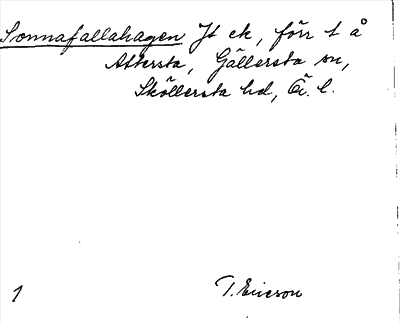 Sonnafallahagen Jt ek, förr t å
Attersta, Gällersta sn,
Sköllersta hd, Ö. l.
T. Ericson
1